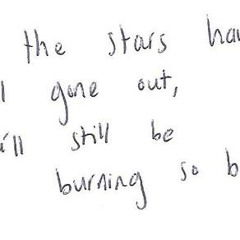 the stars ha
gone out,
ill still be
burning so b